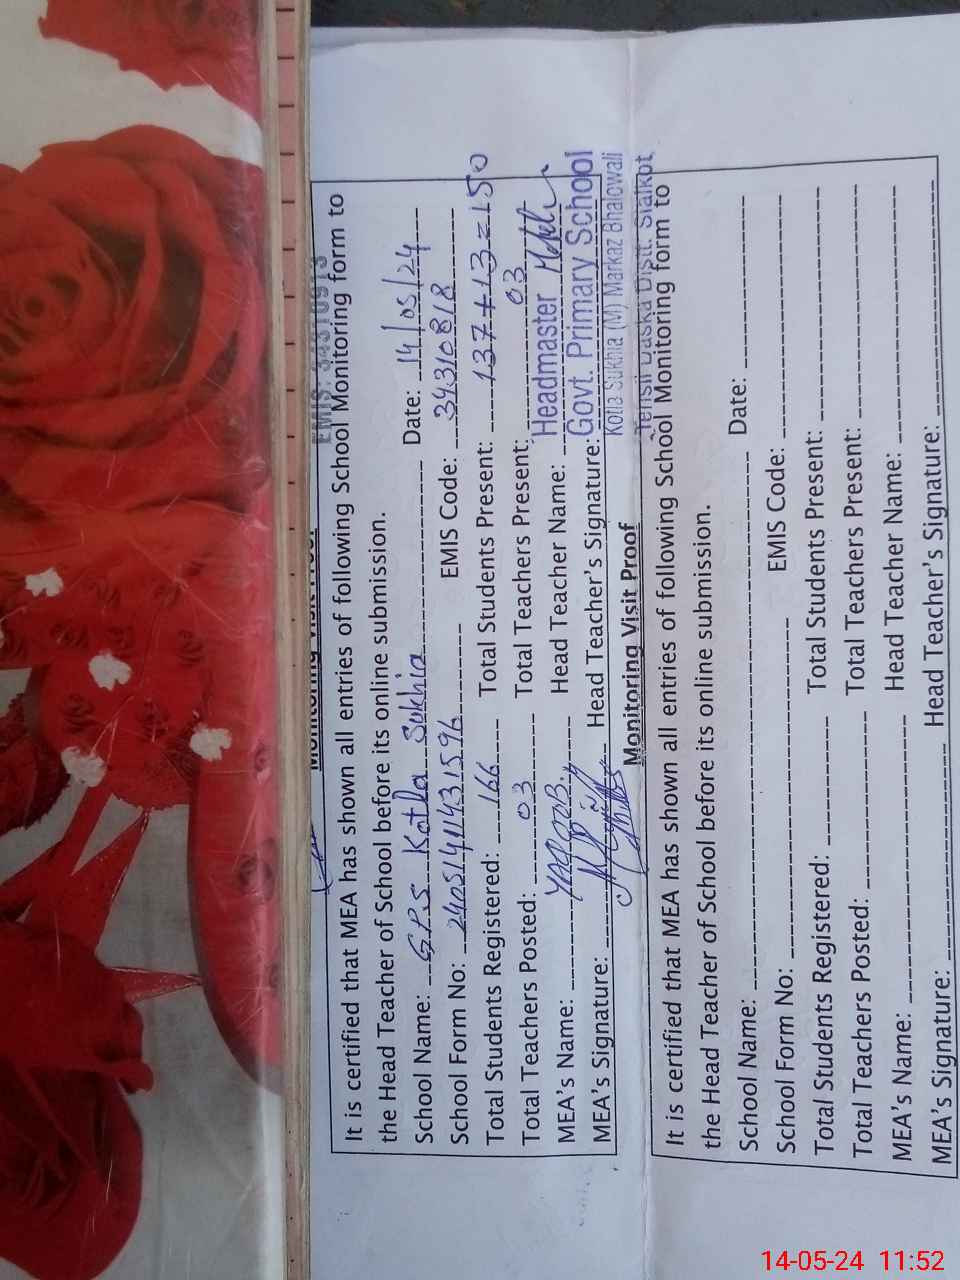 EMIS: 34310913
Monitoring Visit Proof
It is certified that MEA has shown all entries of following School Monitoring form to
the Head Teacher of School before its online submission.
School Name: G.P.S Kotla Sukhia Date: 14/05/24
School Form No: 240514114431596 EMIS Code: 34310818
Total Students Registered: 166 Total Students Present: 137+13=150
Total Teachers Posted: 03 Total Teachers Present: 03
MEA's Name: YAQOOB. Head Teacher Name:
MEA's Signature: Head Teacher's Signature:
Headmaster
Govt. Primary School
Kotla Sukhia (M) Markaz Bhalowali
Tehsil Daska Distt. Sialkot
Monitoring Visit Proof
It is certified that MEA has shown all entries of following School Monitoring form to
the Head Teacher of School before its online submission.
School Name: Date:
School Form No: EMIS Code:
Total Students Registered: Total Students Present:
Total Teachers Posted: Total Teachers Present:
MEA's Name: Head Teacher Name:
MEA's Signature: Head Teacher's Signature:
14-05-24 11:52